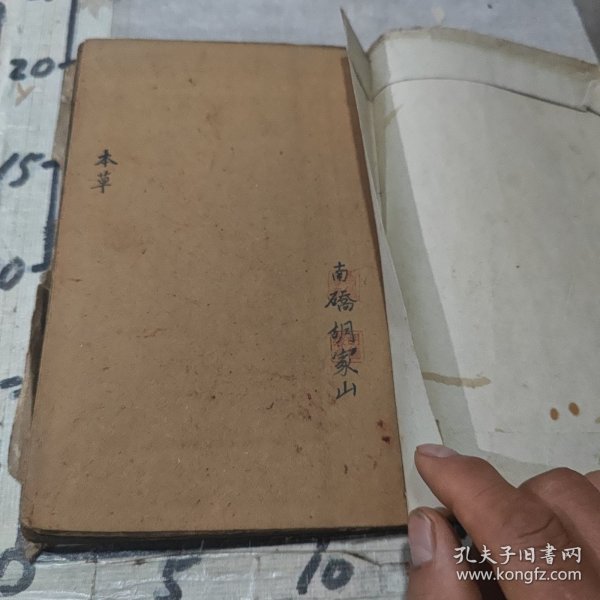 本草
南礄胡家山
20
15
0
0
5
10
孔夫子旧书网
www.kongfz.com